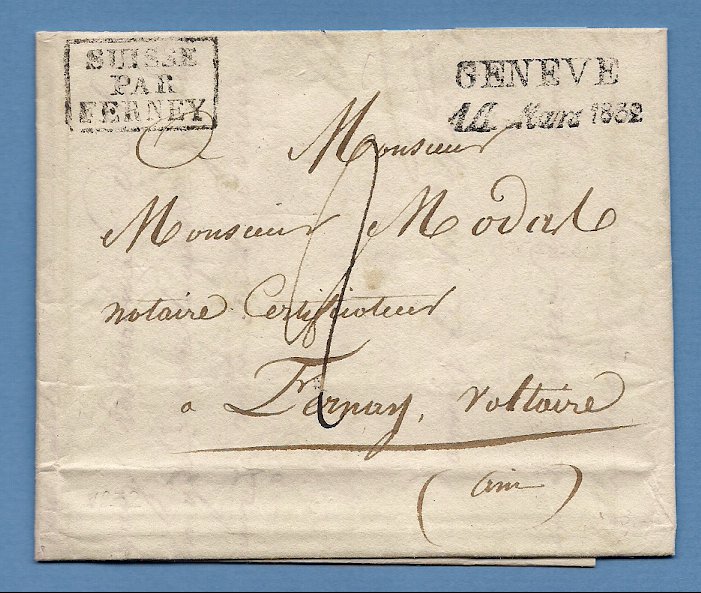 SUISSE
PAR
FERNEY
GENEVE
Mars 1832
A Monsieur
Monsieur Modas
notaire Certificateur
a Fernay, Voltaire
(ain)